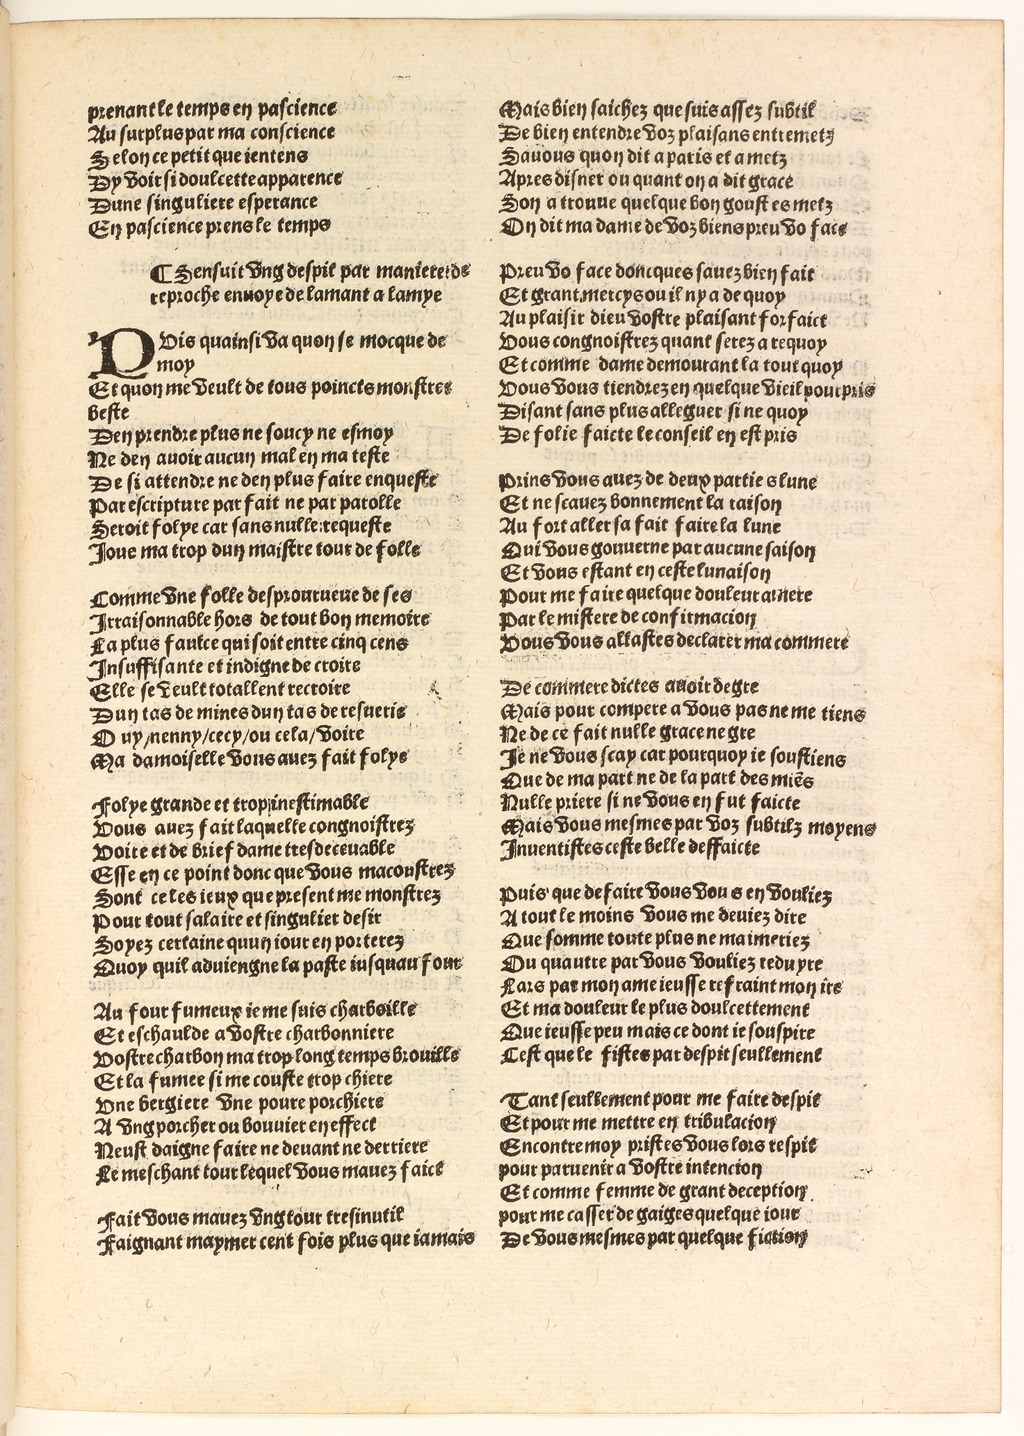 prenant le temps en pascience
Au surplus par ma conscience
Selon ce petit que ientens
Dy voir si doulcette apparence
Dune singuliere esperance
En pascience prens le temps
¶ Sensuit vng despit par maniere de
reproche enuoye de lamant a lamye
Pvis quainsi va quon se mocque de
moy
Et quon me veult de tous poinctz monstrer
beste
Den prendre plus ne soucy ne esmoy
Ne den auoir aucun mal en ma teste
De si attendre ne den plus faire enqueste
Par escripture par fait ne par parolle
Seroit folye car sans nulle requeste
Ioue ma trop dun maistre tour de folle
Comme vne folle desprourueue de ses
Irraisonnable hors de tout bon memoire
La plus faulce qui soit entre cinq cens
Insuffisante et indigne de croire
Elle se veult totallent recroire
Dun tas de mines dun tas de resuerie
O uy/nenny/cecy/ou cela/voire
Ma damoiselle vous auez fait folye
Folye grande et trop inestimable
Vous auez fait laquelle congnoistrez
Voire et de brief dame tresdeceuable
Esse en ce point donc que vous macoustrez
Sont ce les ieux que present me monstrez
Pour tout salaire et singulier desir
Soyez certaine quun iour en porterez
Quoy quil aduiengne la paste iusquau four
Au four fumeux ie me suis charboille
Et eschaulde a vostre charbonniere
Vostre charbon ma trop long temps brouille
Et la fumee si me couste trop chiere
Vne bergiere vne poure porchiere
A vng porcher ou bouuier en effect
Neust daigne faire ne deuant ne derriere
Le meschant tour lequel vous mauez faict
Fait vous mauez vng tour tresinutil
Faignant maymer cent fois plus que iamais
Mais bien saichez que suis assez subtil
De bien entendre voz plaisans entremetz
Sauous quon dit a paris et a metz
Apres disner ou quant on a dit grace
Son a trouue quelque bon goust es metz
On dit ma dame de voz biens preu vo face
Preu vo face doncques sauez bien fait
Et grant mercys ou il ny a de quoy
Au plaisir dieu vostre plaisant forfaict
Vous congnoistrez quant serez a requoy
Et comme dame demourant la tout quoy
Vous vous tiendrez en quelque vieil pourpris
Disant sans plus alleguer si ne quoy
De folie faicte le conseil en est pris
Prins vous auez de deux parties lune
Et ne scauez bonnement la raison
Au fort aller sa fait faire la lune
Qui vous gouuerne par aucune saison
Et vous estant en ceste lunaison
Pour me faire quelque douleur amere
Par le mistere de confirmacion
Vous vous allastes declarer ma commere
De commere dictes auoir de gre
Mais pour compere a vous pas ne me tiens
Ne de ce fait nulle grace ne gre
Ie ne vous scay car pourquoy ie soustiens
Que de ma part ne de la part des miēs
Nulle priere si ne vous en fut faicte
Mais vous mesmes par voz subtilz moyens
Inuentistes ceste belle deffaicte
Puis que de faire vous vous en vouliez
A tout le moins vous me deuiez dire
Que somme toute plus ne ma imeriez
Ou quautre par vous vouliez reduyre
Lars par mon ame ieusse refraint mon ire
Et ma douleur le plus doulcettement
Que ieusse peu mais ce dont ie souspire
Cest que le fistes par despit seullement
Tant seullement pour me faire despit
Et pour me mettre en tribulacion
Encontre moy pristes vous lors respit
pour paruenir a vostre intencion
Et comme femme de grant deception
pour me casser de gaiges quelque iour
De vous mesmes par quelque fiction